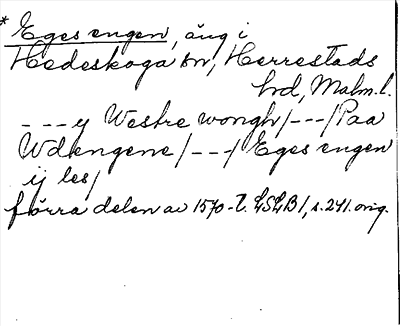 * Eges engen, äng i
Hedeskoga sn, Herrestads
hrd, Malm.l.
---y Westre wongh/---/Paa
Wdengene/---/ Eges engen
ij les/
förra delen av 1570-t. LSLB1, s.241. orig.